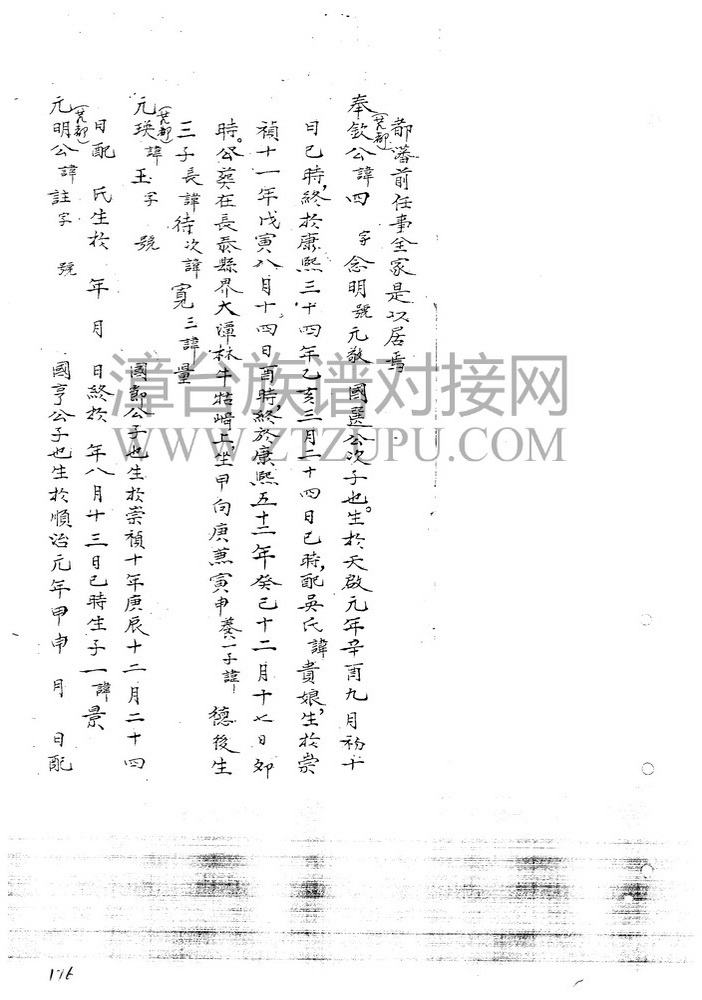 都藩前任事全家是以居焉
奉欽公諱四 字念明號元敬 國選公次子也。生於天啟元年辛酉九月初十
日巳時,終於康熙三十四年乙亥三月二十四日巳時,配吳氏諱貴娘生,於崇
禎十一年戊寅八月十四日酉時,終於康熙五十二年癸巳十二月十七日卯
時。公葬在長泰縣界大潭林牛牯崎上,坐甲向庚兼寅申 養一子諱德後生
三子長諱待次諱寬三諱量
元瑛諱玉字 號 國 公子也生於崇禎十年庚辰十二月二十四
日配 氏生於 年 月 日終於 年八月十三日巳時生子一諱景
元明公諱註字 號 國亨公子也生於順治元年甲申 月 日配
漳台族谱对接网
WWW.ZTZUPU.COM
176